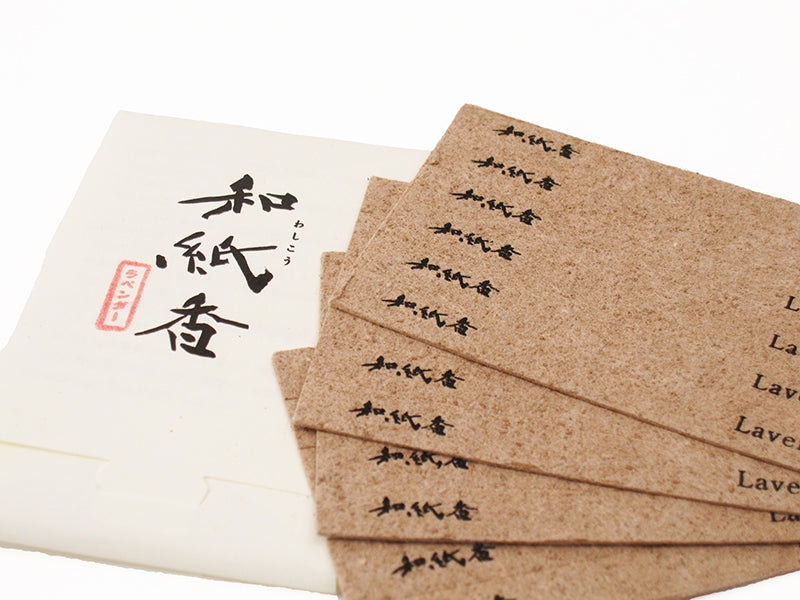 和紙香
わしこう
ラベンダー
和紙香
和紙香
和紙香
和紙香
和紙香
和紙香
L
La
Lave
Lave
和紙香
和紙香
Lave
和紙香
和紙香
La
和紙香